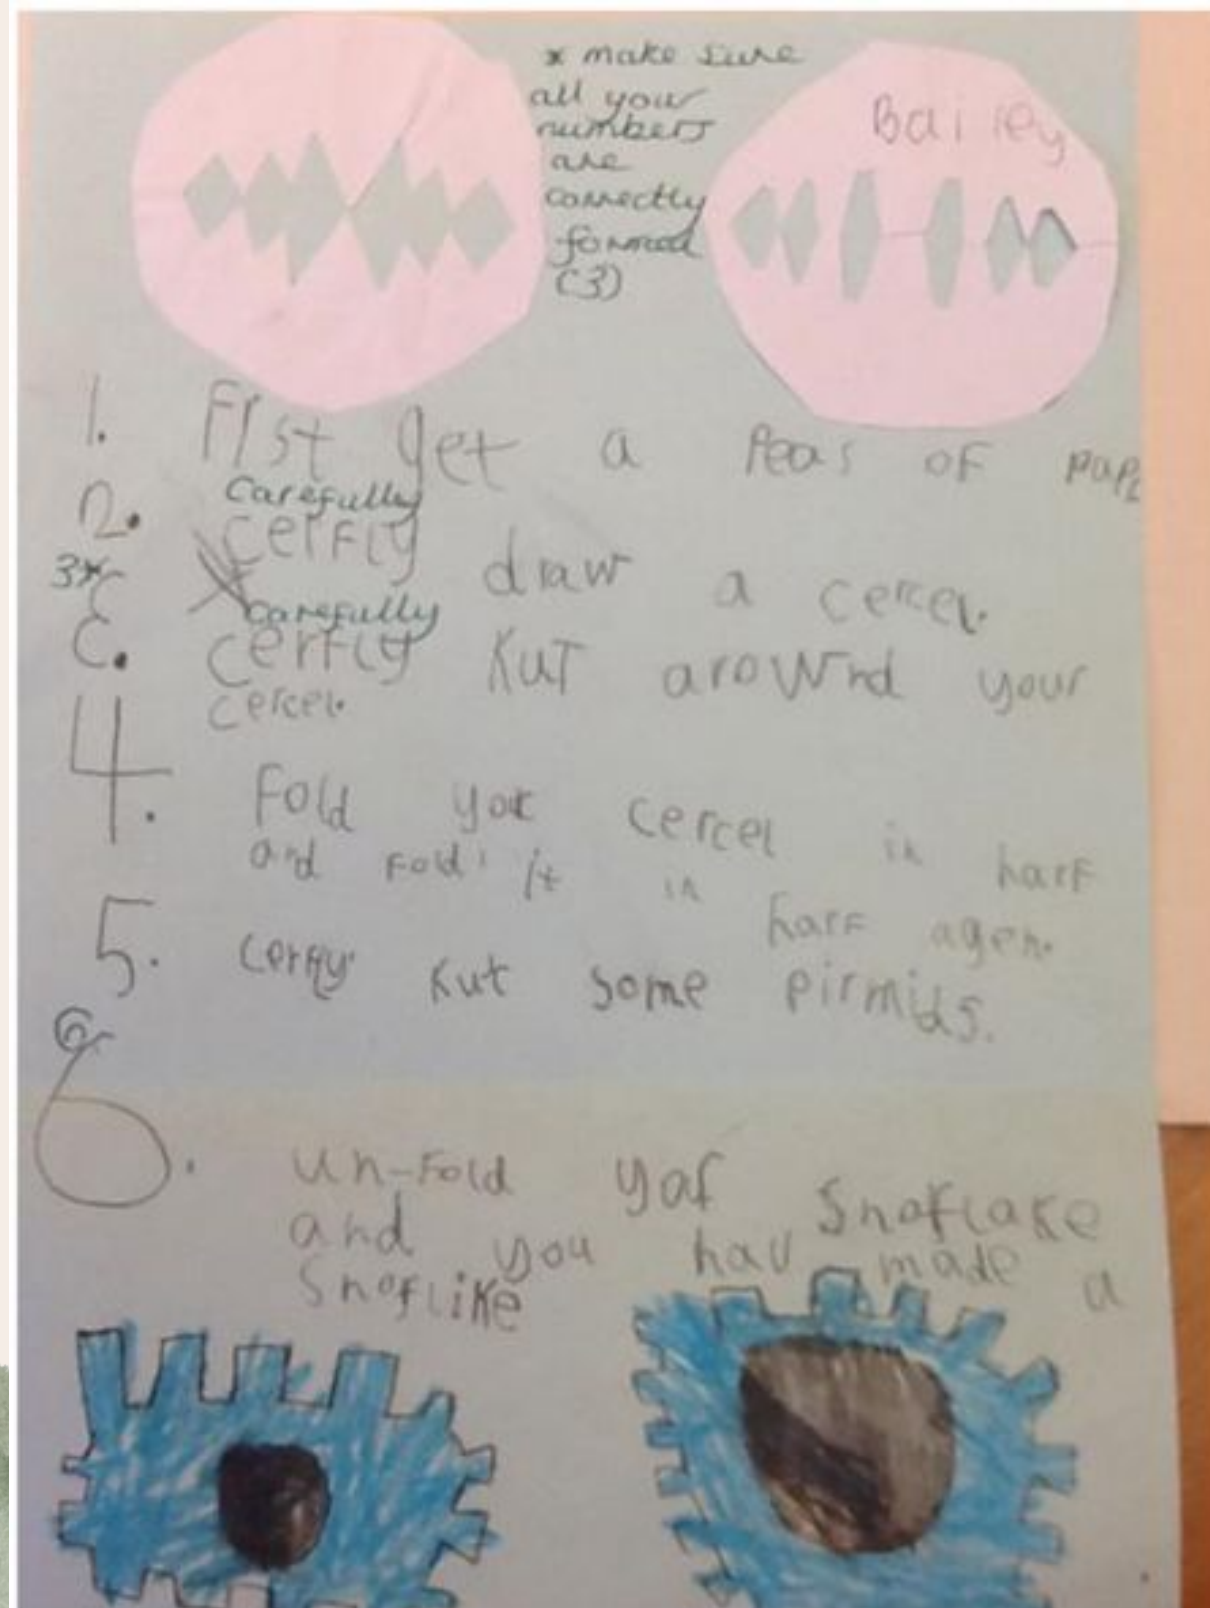 * make sure
all your
numbers
are
correctly
formed
(3)
Bailey
1. First get a Peas of pape
Carefully
2. cerfly draw a cercel.
3*
carefully
3. cerfly kut arownd your
cercel.
4. Fold yor cercel in harf
and Fold it in harf agen.
5. cerfly kut some pirmids.
6
6. un-Fold yor Snoflake
and you hav made a
Snoflike